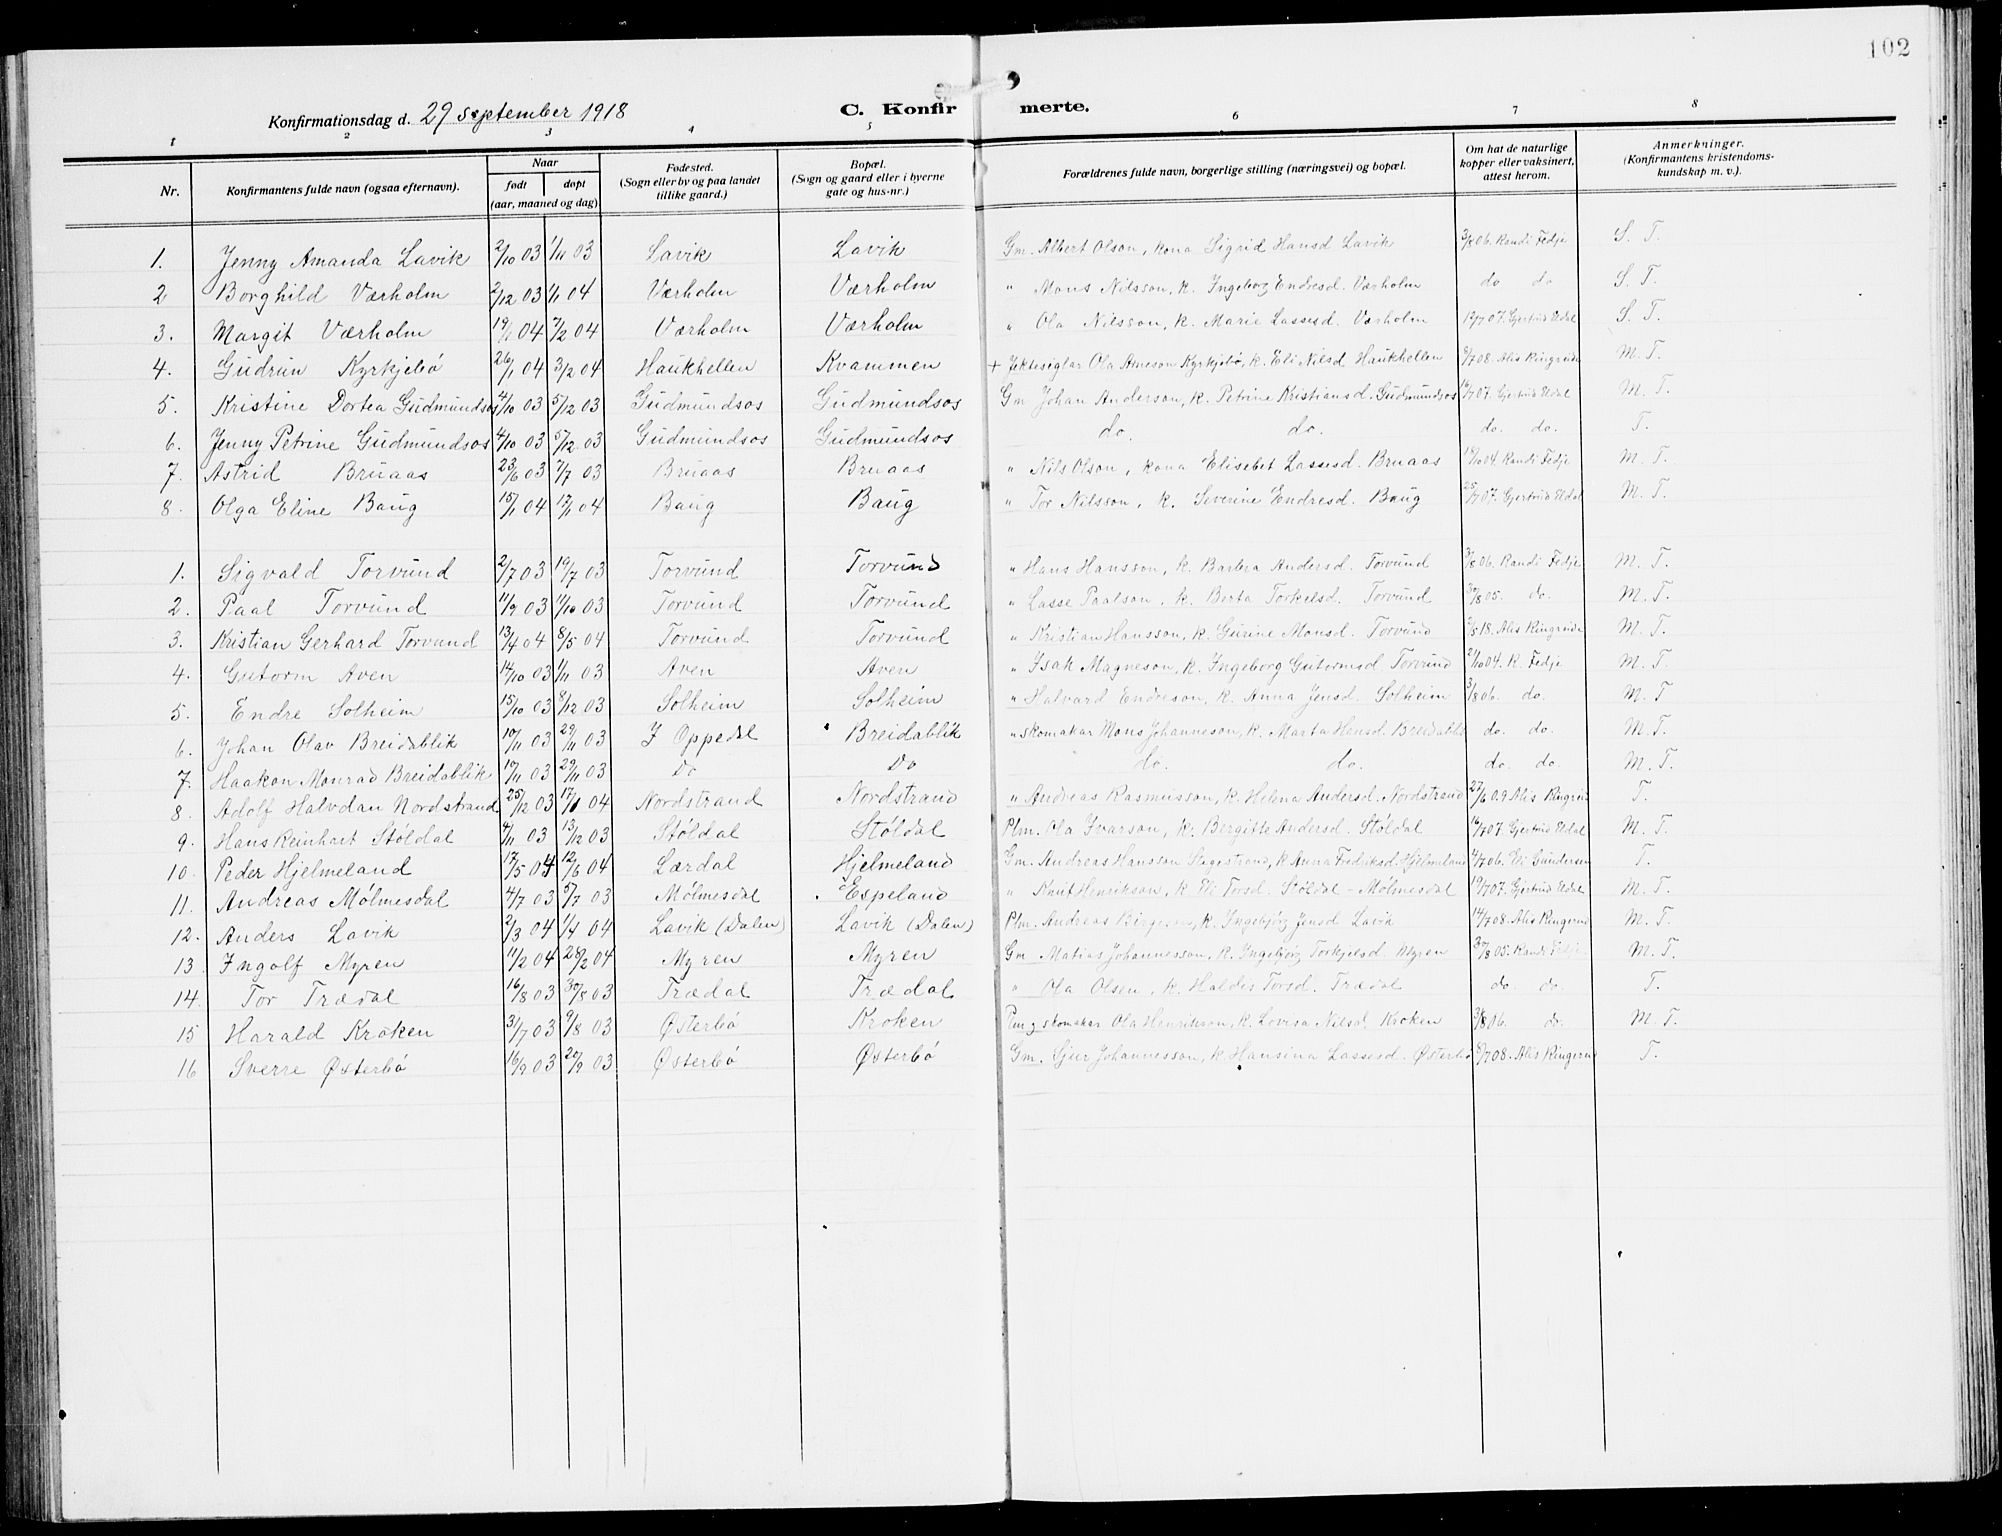 102
Konfirmationsdag d. 29 september 1918 C. Konfir merte.
1 2 3 4 5 6 7 8
Nr. Konfirmantens fulde navn (ogsaa efternavn). Naar født døpt (aar, maaned og dag) Fødested. (Sogn eller by og paa landet tillike gaard.) Bopæl. (Sogn og gaard eller i byerne gate og hus-nr.) Forældrenes fulde navn, borgerlige stilling (næringsvei) og bopæl. Om hat de naturlige kopper eller vaksinert, attest herom. Anmerkninger. (Konfirmantens kristendoms-kundskap m. v.).
1. Jenny Amanda Lavik 2/10 03 1/11 03 Lavik Lavik Gm. Albert Olson, kona Sigrid Hansd Lavik 3/8 06. Randi Fedje S. T.
2 Borghild Værholm 2/12 03 1/1 04 Værholm Værholm " Mons Nilsson, k. Ingeborg Endresd. Værholm do do S. T.
3. Margit Værholm 19/1 04 7/2 04 Værholm Værholm " Ola Nilsson, k. Marie Lassesd. Værholm 19/7 07. Gjertrud Eldal S. T.
4. Gudrun Kyrkjebø 26/1 04 3/2 04 Haukhellen Kvammen + Jektesiglar Ola Arneson Kyrkjebø, k. Eli Nilsd Haukhellen 9/7 08. Alis Ringrude M. T.
5. Kristine Dortea Gudmundsos 4/10 03 5/12 03 Gudmundsos Gudmundsos Gm Johan Anderson, k. Petrine Kristiansd. Gudmundsos 16/7 07. Gjertrud Eldal M. T.
6. Jenny Petrine Gudmundsos 4/10 03 5/12 03 Gudmundsos Gudmundsos do. do. do. do. T.
7. Astrid Bruaas 23/6 03 7/7 03 Bruaas Bruaas " Nils Olson, kona Elisebet Lassesd. Bruaas 18/10 04. Randi Fedje M. T.
8. Olga Eline Baug 15/1 04 17/1 04 Baug Baug " Tor Nilsson, k. Severine Endresd. Baug 25/7 07. Gjertrud Eldal M. T.
1. Sigvald Torvund 2/7 03 19/7 03 Torvund Torvund " Hans Hansson, k. Barbra Andersd. Torvund 3/8 06. Randi Fedje M. T.
2. Paal Torvund 11/9 03 11/10 03 Torvund Torvund " Lasse Paalson, k. Berta Torkelsd. Torvund 30/8 05. do. M. T.
3. Kristian Gerhard Torvund 13/4 04 8/5 04 Torvund Torvund " Kristian Hansson, k. Gurine Monsd. Torvund 2/5 18. Alis Ringrude M. T.
4. Gutorm Aven 14/10 03 1/11 03 Aven Aven " Isak Magneson, k. Ingeborg Gutormsd. Torvund 21/10 04. R. Fedje M. T.
5. Endre Solheim 15/10 03 8/12 03 Solheim Solheim " Halvard Endreson, k. Anna Jensd. Solheim 3/8 06. do. M. T
6. Johan Olav Breidablik 10/11 03 29/11 03 I Oppedal Breidablik " skomakar Mons Johanneson, k. Marta Hansd. Breidablik do. do. M. T.
7. Haakon Monrad Breidablik 10/11 03 29/11 03 Do Do do. do. do. do. M. T.
8. Adolf Halvdan Nordstrand 25/12 03 17/1 04 Nordstrand Nordstrand " Andreas Rasmusson, k. Helena Andersd. Nordstrand 27/6 09 Alis Ringrud T.
9. Hans Reinhart Støldal 4/11 03 13/12 03 Støldal Støldal Plm. Ola Ivarson, k. Bergitte Andersd. Støldal 16/7 07. Gjertrud Eldal M. T.
10. Peder Hjelmeland 17/5 04 12/6 04 Lærdal Hjelmeland Gm. Andreas Hansson Stegestrand, k. Anna Fedriksd. Hjelmeland 4/7 06. Eli Gundersen T.
11. Andreas Mølmesdal 4/7 03 5/7 03 Mølmesdal Espeland " Knut Henrikson, k. Eli Torsd. Støldal - Mølmesdal 19/7 07. Gjertrud Eldal M. T.
12. Anders Lavik 2/3 04 1/4 04 Lavik (Dalen) Lavik (Dalen) Plm. Andreas k. Ingebjørg Jensd Lavik 14/7 08. Alis Ringerud M. T.
13 Ingolf Myren 11/2 04 28/2 04 Myren Myren Gm Matias Johannesson, k. Ingebjørg Torkjelsd. Myren 30/8 05. Randi Fedje M. T.
14. Tor Trædal 16/8 03 30/8 03 Trædal Trædal " Ola Olsen, k. Haldis Torsd. Trædal do. do. T.
15 Harald Kroken 3/7 03 9/8 03 Østerbø Kroken Plm g skomakar Ola Henrikson, k. Lovisa Nilsd. Kroken 3/8 06. do. M T.
16 Sverre Østerbø 16/9 03 20/9 03 Østerbø Østerbø Gm. Sjur Johannesson, k. Hansina Lassesd. Østerbø 9/7 08. Alis Ringerud T.